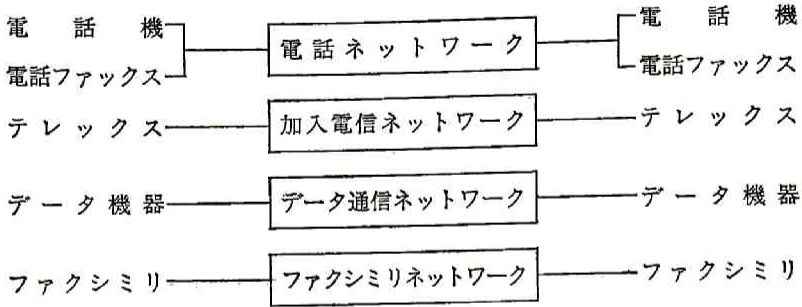 電話機 電話ネットワーク 電話機
電話ファックス 電話ファックス
テレックス 加入電信ネットワーク テレックス
データ機器 データ通信ネットワーク データ機器
ファクシミリ ファクシミリネットワーク ファクシミリ